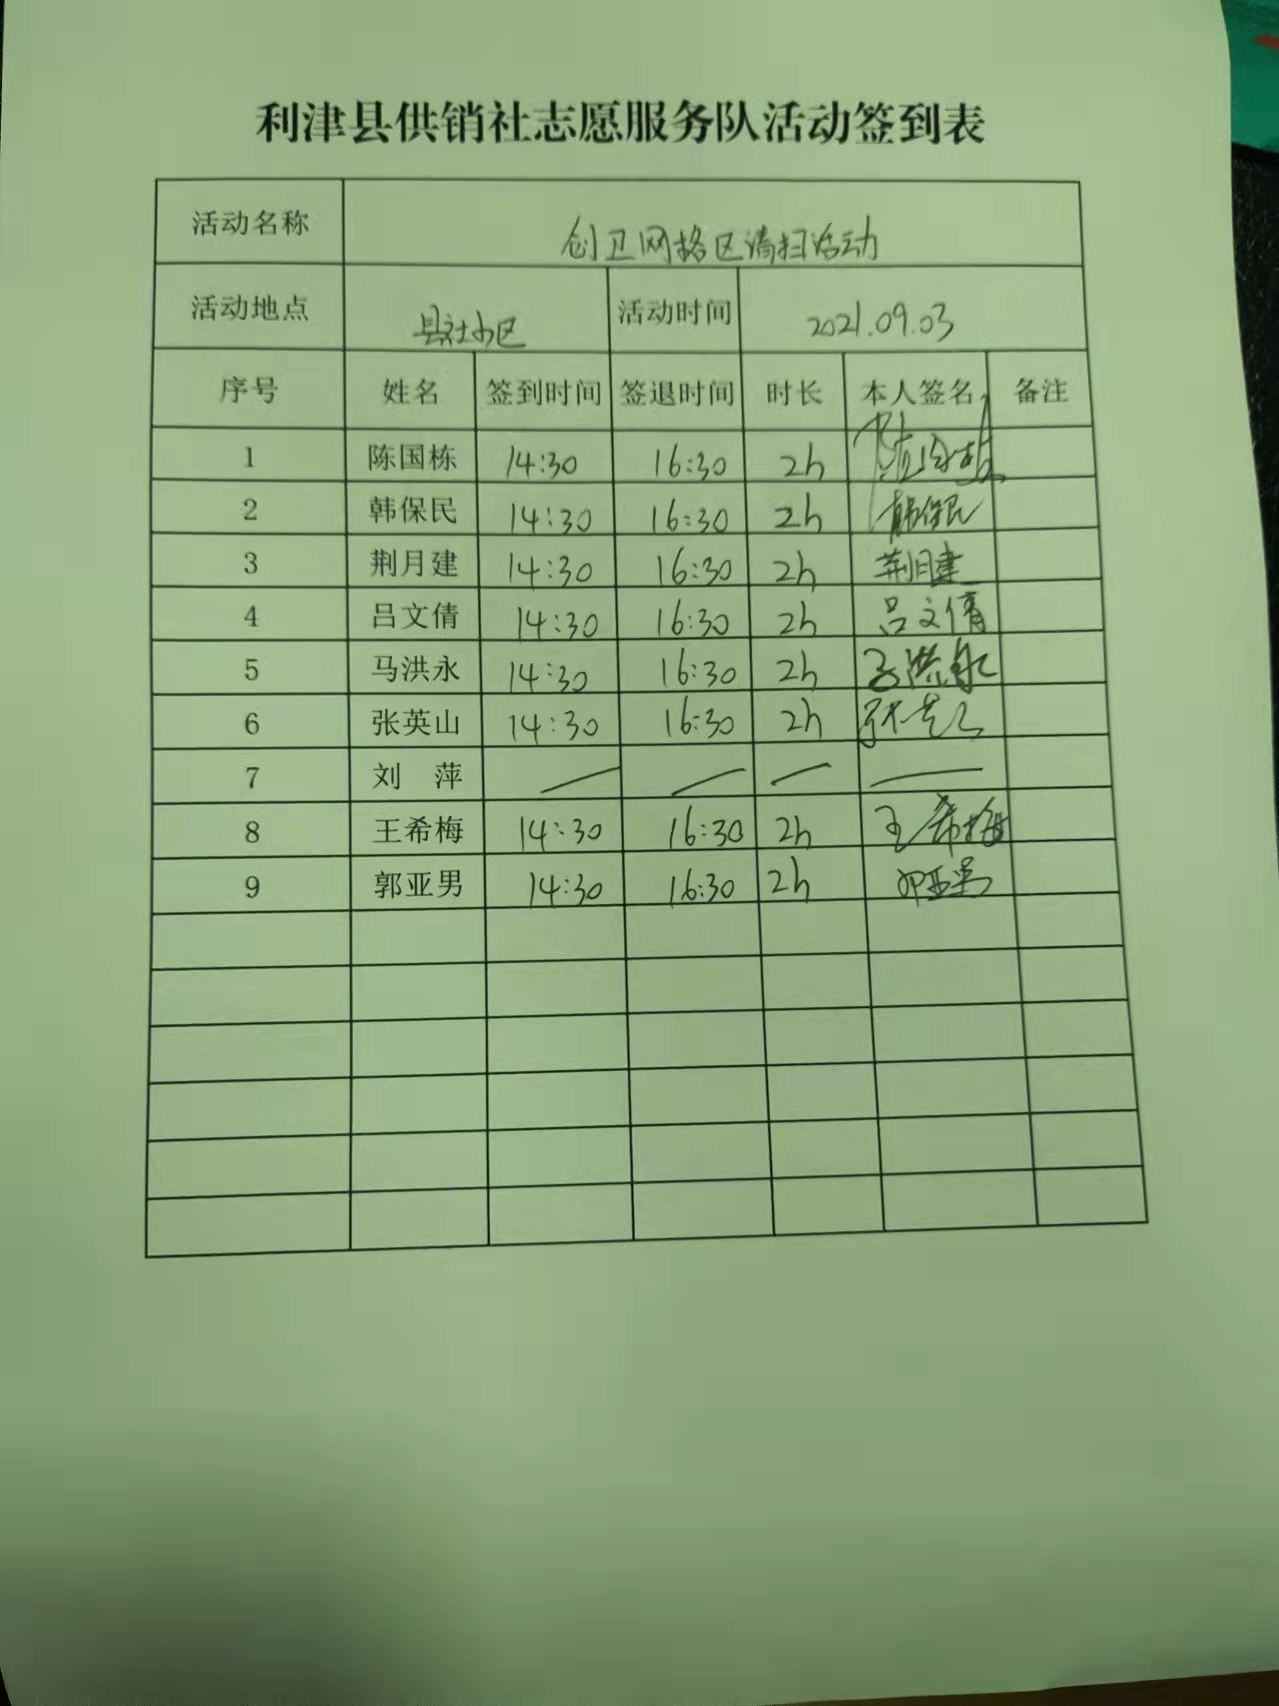 利津县供销社志愿服务队活动签到表
活动名称 创卫网格区清扫活动
活动地点 县社小区 活动时间 2021.09.03
序号 姓名 签到时间 签退时间 时长 本人签名 备注
1 陈国栋 14:30 16:30 2h 陈国栋
2 韩保民 14:30 16:30 2h 韩保民
3 荆月建 14:30 16:30 2h 荆月建
4 吕文倩 14:30 16:30 2h 吕文倩
5 马洪永 14:30 16:30 2h 马洪永
6 张英山 14:30 16:30 2h 张英山
7 刘 萍
8 王希梅 14:30 16:30 2h 王希梅
9 郭亚男 14:30 16:30 2h 郭亚男